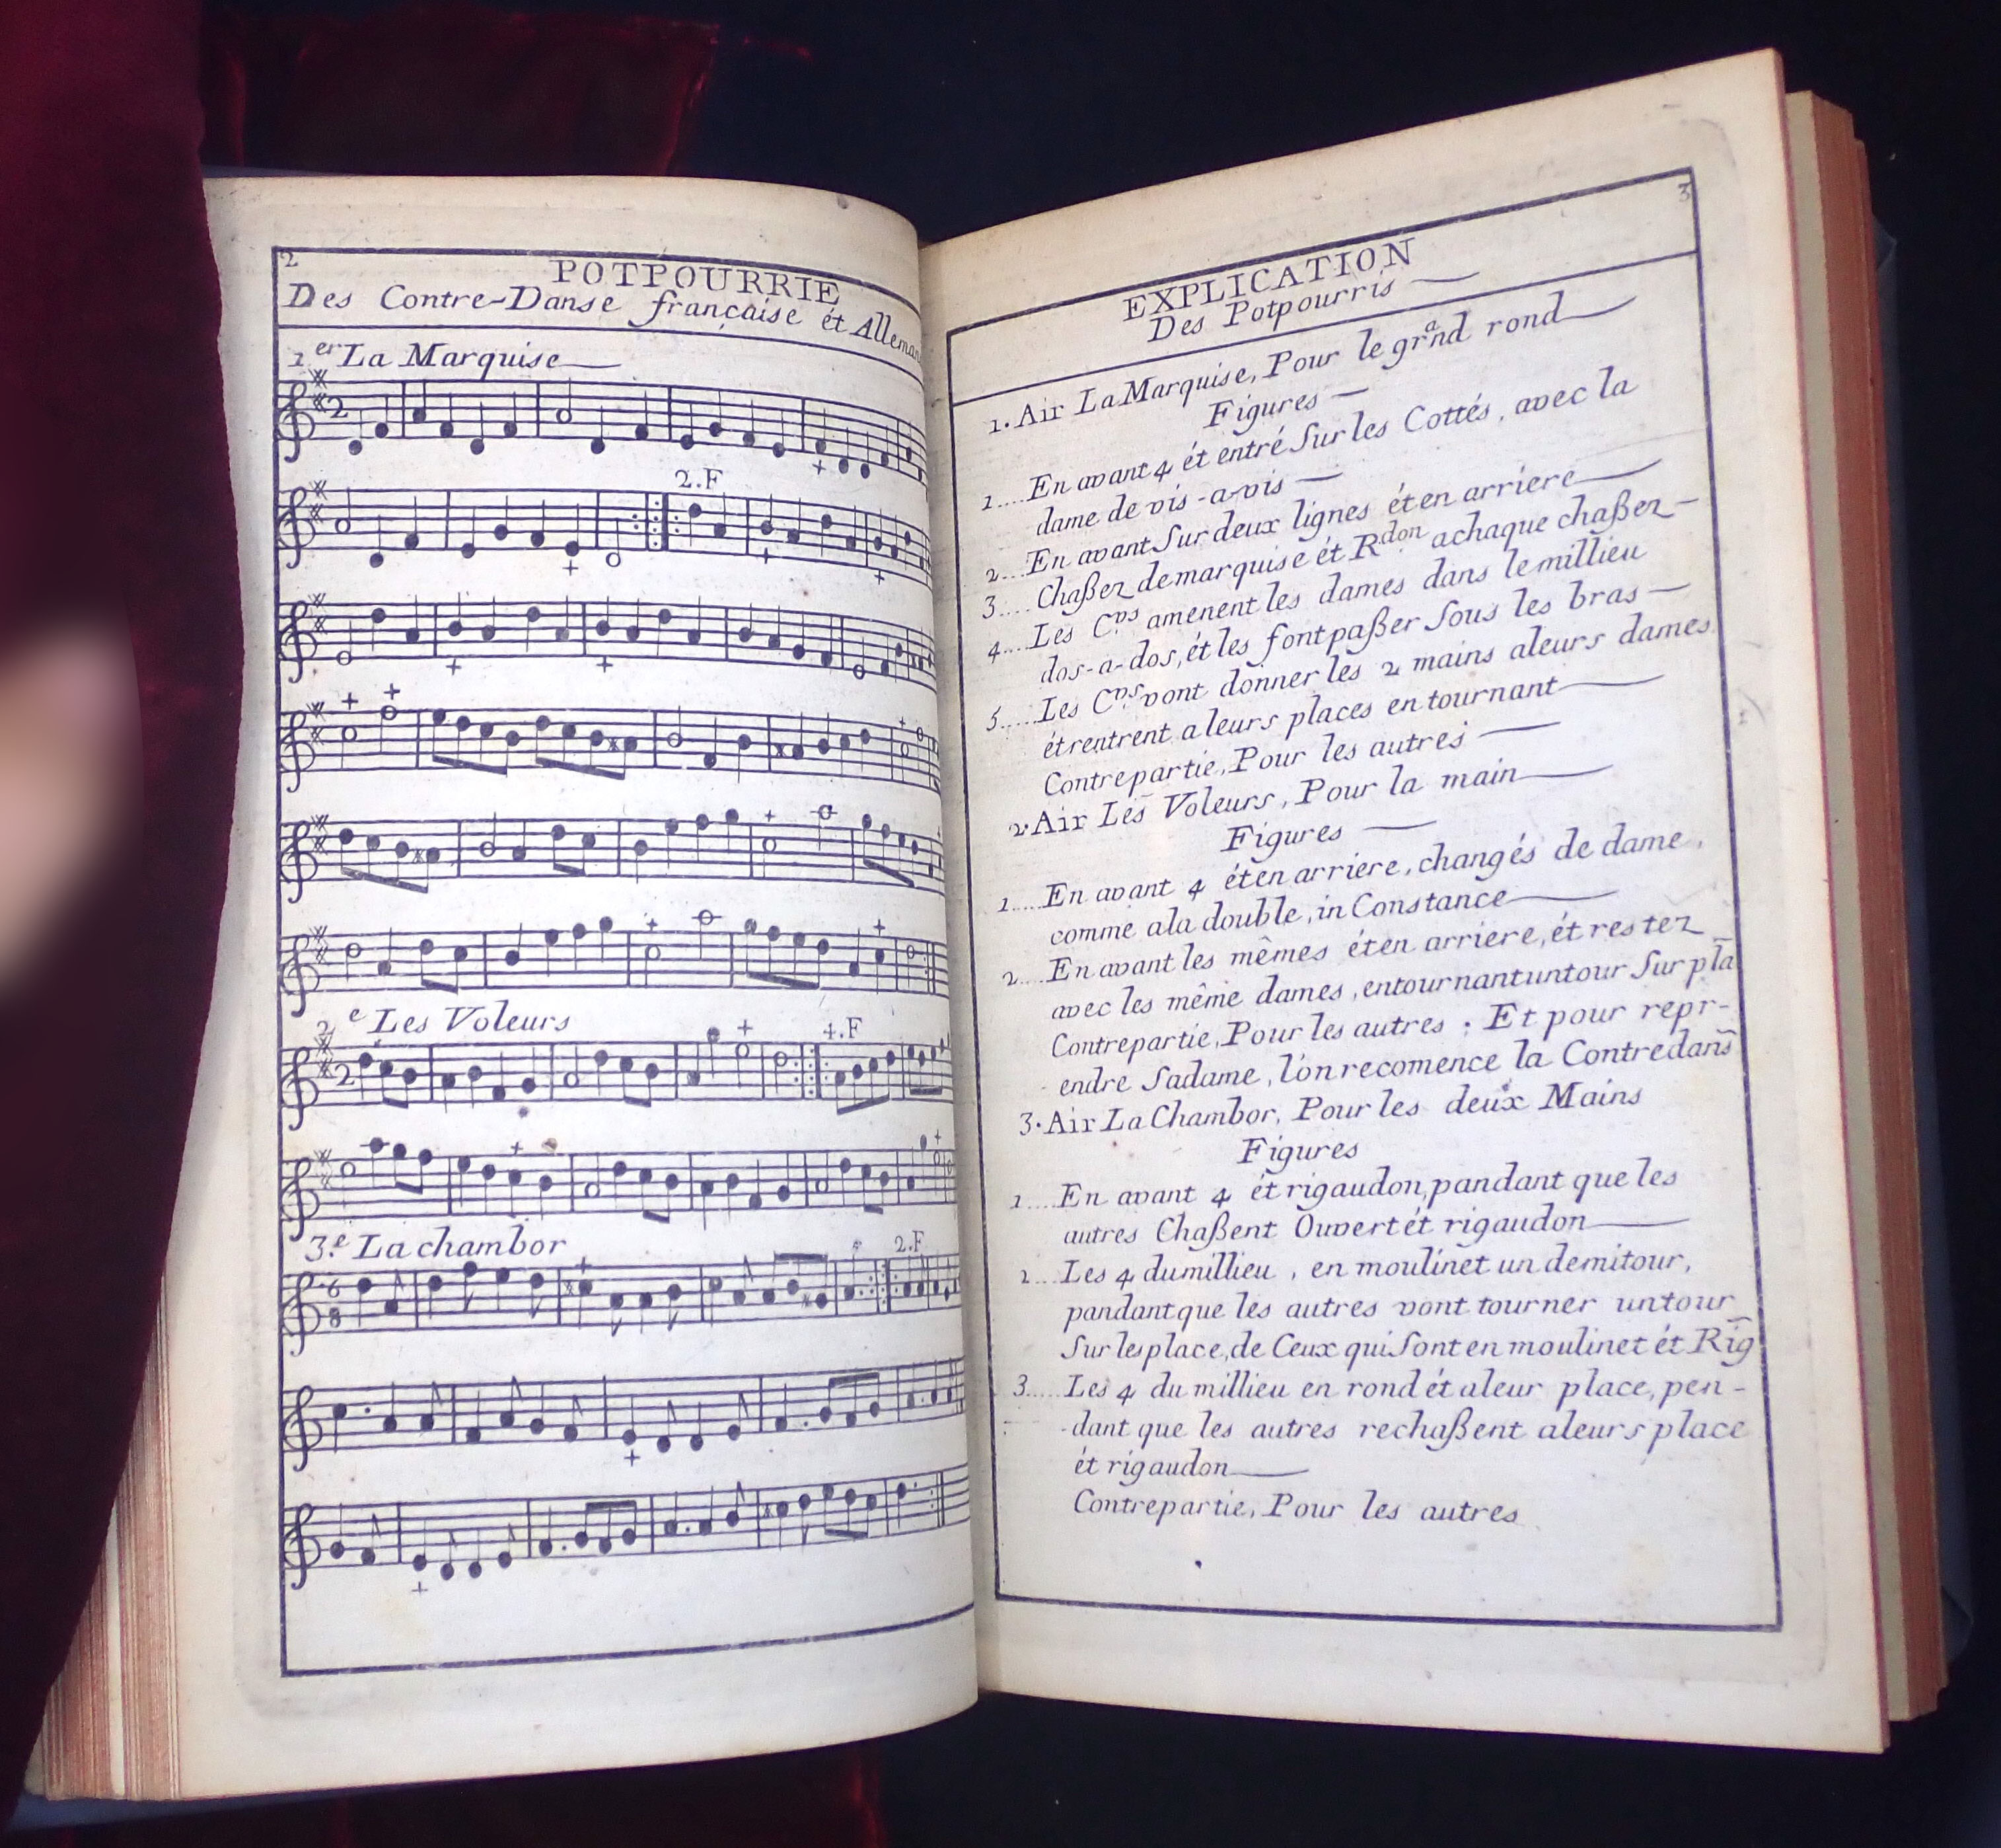 2
POTPOURRIE
Des Contre-Danse française ét
1.er La Marquise
2
2.F
2.e Les Voleurs
4.F
2
3.e La chambor
2.F
6
8
3
EXPLICATION
Des Potpourris
1. Air La Marquise, Pour le grand rond
Figures
1.... En avant 4 ét entré Sur les Cottés, avec la
dame de vis-a-vis
2... En avant Sur deux lignes ét en arriere
3.... Chaßez de marquise ét Rdon achaque chaßez
4.... Les C.vs amenent les dames dans le millieu
dos-a-dos, ét les font paßer Sous les bras
5.... Les C.vs vont donner les 2 mains aleurs dames
ét rentrent a leurs places en tournant
Contrepartie, Pour les autres
2. Air Les Voleurs, Pour la main
Figures
1.... En avant 4 ét en arriere, changés de dame,
comme ala double, in Constance
2.... En avant les mêmes ét en arriere, ét restez
avec les même dames, entournantuntour Sur pla
Contrepartie, Pour les autres ; Et pour repr-
endre Sadame, l'on recomence la Contredans
3. Air La Chambor, Pour les deux Mains
Figures
1.... En avant 4 ét rigaudon, pandant que les
autres Chaßent Ouvert ét rigaudon
2... Les 4 dumillieu, en moulinet un demitour,
pandant que les autres vont tourner untour
Sur les place, de Ceux qui Sont en moulinet ét Rig
3.... Les 4 du millieu en rond ét aleur place, pen-
-dant que les autres rechaßent aleurs place
ét rigaudon
Contrepartie, Pour les autres